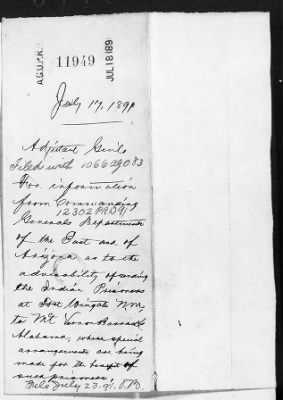 A.G.O.P.R.
11949
JUL 18 189
July 17, 1891
Adjutant Genl.
Filed with 1066 AGO 83
For information
from Commanding
12302 PRD 91
Generals Departments
of the East and of
Arizona as to the
advisability of sending
the Indian Prisoners
at Fort Wingate N.M.
to Mt. Vernon Barracks
Alabama, where special
arrangements are being
made for the benefit of
such prisoners.
July 23. 91.